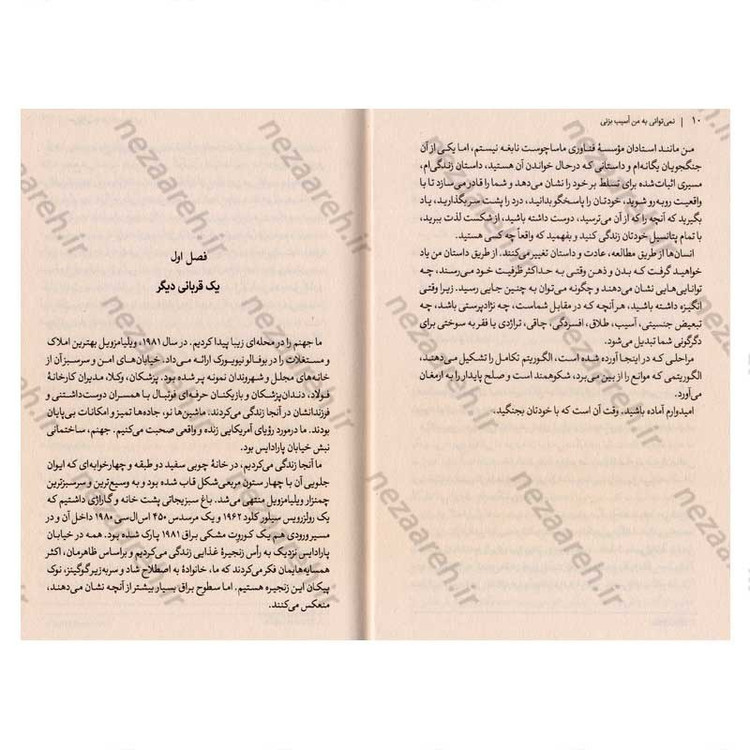 ۱۰ | نمی‌توانی به من آسیب بزنی
من مانند استادان مؤسسهٔ فناوری ماساچوست نابغه نیستم، اما یکی از آن
جنگجویان یگانه‌ام و داستانی که درحال خواندن آن هستید، داستان زندگی‌ام،
مسیری اثبات‌شده برای تسلط بر خود را نشان می‌دهد و شما را قادر می‌سازد تا با
واقعیت روبه‌رو شوید، خودتان را پاسخگو بدانید، درد را پشت سر بگذارید، یاد
بگیرید که آنچه را که از آن می‌ترسید، دوست داشته باشید، از شکست لذت ببرید،
با تمام پتانسیل خودتان زندگی کنید و بفهمید که واقعاً چه کسی هستید.
انسان‌ها از طریق مطالعه، عادت و داستان تغییر می‌کنند. از طریق داستان من یاد
خواهید گرفت که بدن و ذهن وقتی به حداکثر ظرفیت خود می‌رسند، چه
توانایی‌هایی نشان می‌دهند و چگونه می‌توان به چنین جایی رسید. زیرا وقتی
انگیزه داشته باشید، هر آنچه که در مقابل شماست، چه نژادپرستی باشد، چه
تبعیض جنسیتی، آسیب، طلاق، افسردگی، چاقی، تراژدی یا فقر به سوختی برای
دگرگونی شما تبدیل می‌شود.
مراحلی که در اینجا آورده شده است، الگوریتم تکامل را تشکیل می‌دهند،
الگوریتمی که موانع را از بین می‌برد، شکوهمند است و صلح پایدار را به ارمغان
می‌آورد.
امیدوارم آماده باشید. وقت آن است که با خودتان بجنگید.
فصل اول
یک قربانی دیگر
ما جهنم را در محله‌ای زیبا پیدا کردیم. در سال ۱۹۸۱، ویلیامزویل بهترین املاک
و مستغلات را در بوفالو نیویورک ارائه می‌داد. خیابان‌های امن و سرسبز آن از
خانه‌های مجلل و شهروندان نمونه پر شده بود. پزشکان، وکلا، مدیران کارخانهٔ
فولاد، دندان‌پزشکان و بازیکنان حرفه‌ای فوتبال با همسران دوست‌داشتنی و
فرزندانشان در آنجا زندگی می‌کردند؛ ماشین‌ها نو، جاده‌ها تمیز و امکانات بی‌پایان
بودند. ما درمورد رؤیای آمریکایی زنده و واقعی صحبت می‌کنیم. جهنم، ساختمانی
نبش خیابان پارادایس بود.
ما آنجا زندگی می‌کردیم، در خانهٔ چوبی سفید دو طبقه و چهارخوابه‌ای که ایوان
جلویی آن با چهار ستون مربعی‌شکل قاب شده بود و به وسیع‌ترین و سرسبزترین
چمنزار ویلیامزویل منتهی می‌شد. باغ سبزیجاتی پشت خانه و گاراژی داشتیم که
یک رولزرویس سیلور کلود ۱۹۶۲ و یک مرسدس ۴۵۰ اس‌ال‌سی ۱۹۸۰ داخل آن و در
مسیر ورودی هم یک کوروت مشکی براق ۱۹۸۱ پارک شده بود. همه در خیابان
پارادایس نزدیک به رأس زنجیرهٔ غذایی زندگی می‌کردیم و براساس ظاهرمان، اکثر
همسایه‌هایمان فکر می‌کردند که ما، خانوادهٔ به اصطلاح شاد و سربه‌زیر گوگینز، نوک
پیکان این زنجیره هستیم. اما سطوح براق بسیار بیشتر از آنچه نشان می‌دهند،
منعکس می‌کنند.
nezaareh.ir
nezaareh.ir
nezaareh.ir
nezaareh.ir
nezaareh.ir
nezaareh.ir
nezaareh.ir
nezaareh.ir